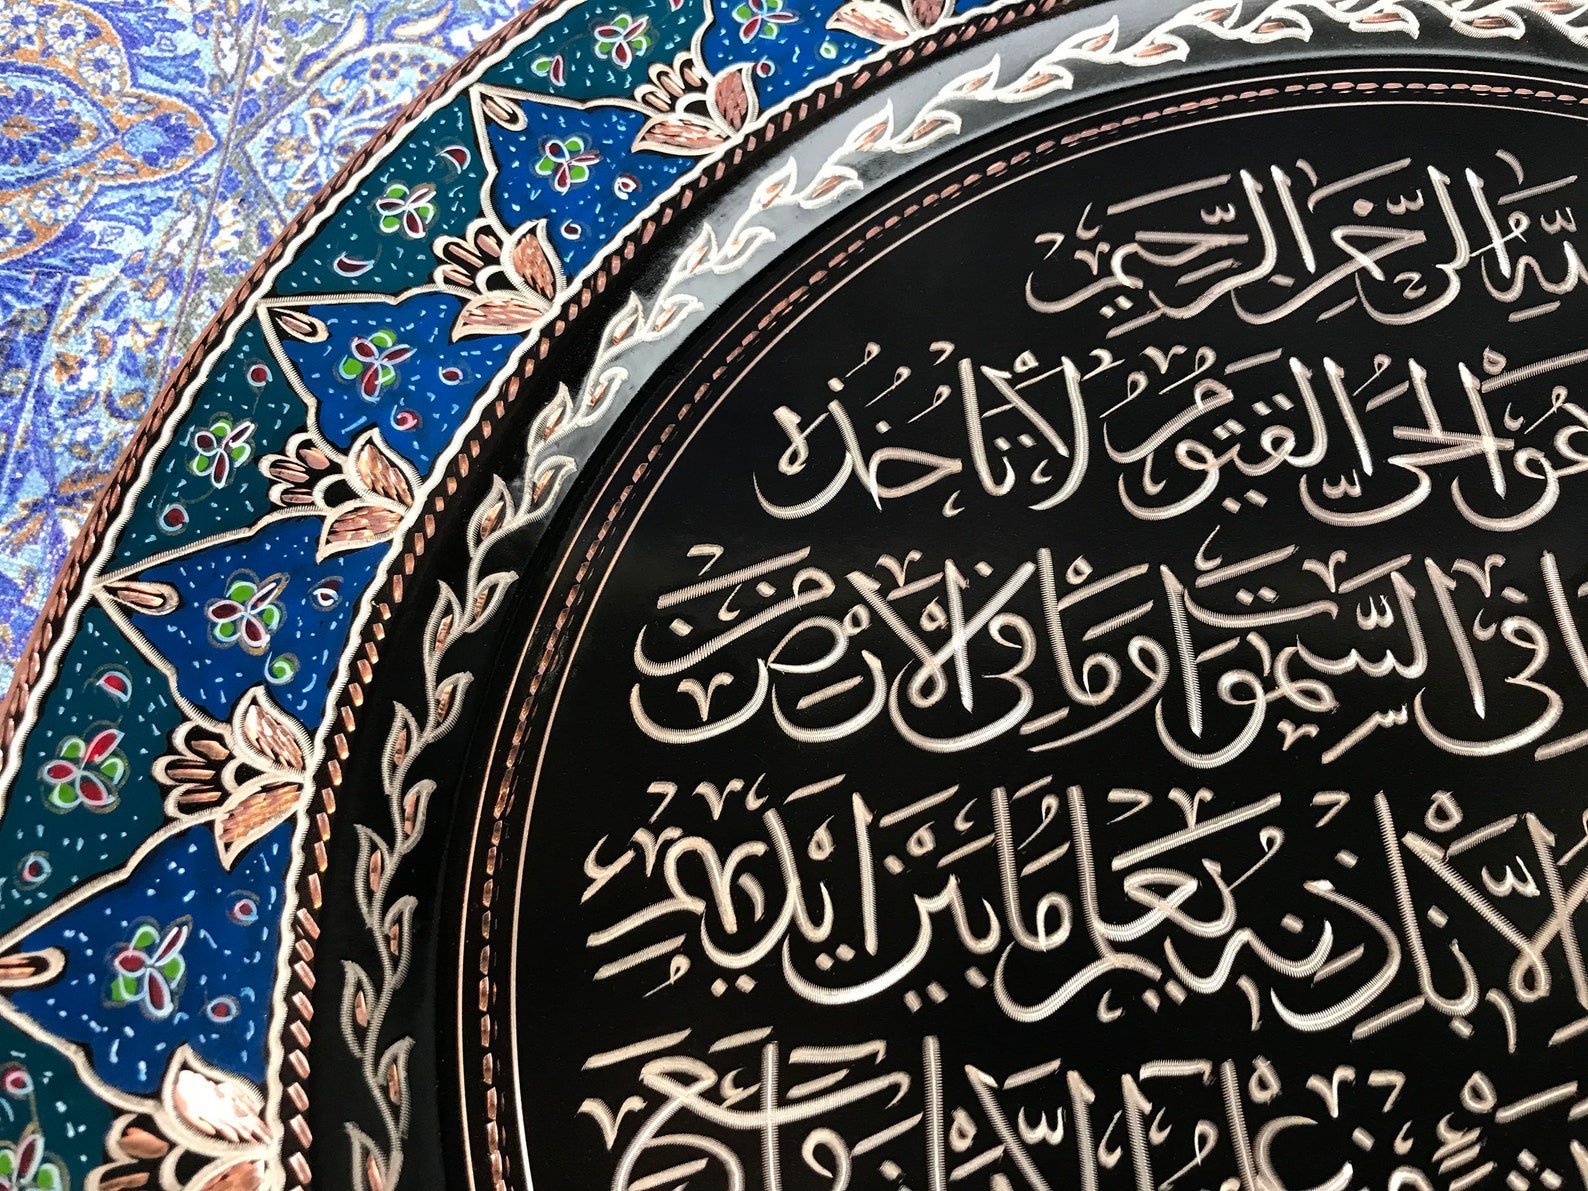 الله الرَّحْمٰنِ الرَّحِيمِ
هُوَ الْحَيُّ الْقَيُّومُ لَا تَأْخُذُهُ
فِي السَّمٰوَاتِ وَمَا فِي الْأَرْضِ مَنْ
إِلَّا بِإِذْنِهِ يَعْلَمُ مَا بَيْنَ أَيْدِيهِمْ
إِلَّا